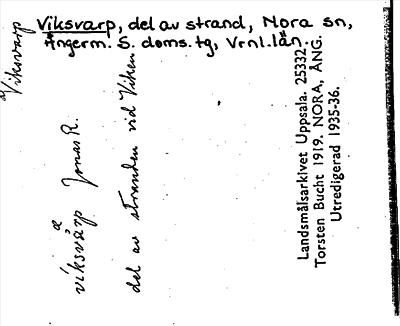 Viksvarp, del av strand, Nora sn,
Ångerm. S. doms. tg, Vrnl. län.
Viksvarp
víksvàrp Jonas R.
æ
del av stranden vid Viken
Landsmålsarkivet Uppsala. 25332.
Torsten Bucht 1919. NORA, ÅNG.
Utredigerad 1935-36.